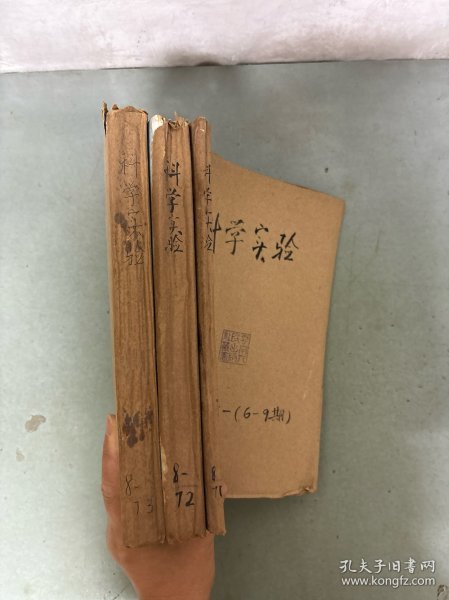 科学实验
8-
73
科学实验
8-
72
科学实验
8-
71
学实验
-(6-9期)
孔夫子旧书网
www.kongfz.com